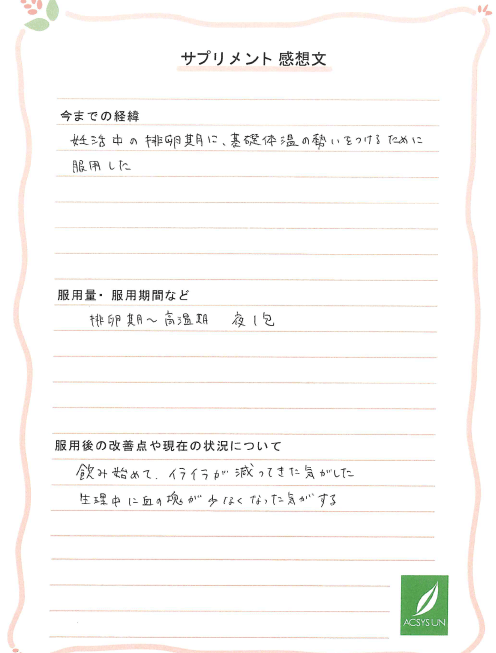 サプリメント 感想文
今までの経緯
妊活中の排卵期に、基礎体温の勢いをつけるために
服用した
服用量・服用期間など
排卵期～高温期 夜1包
服用後の改善点や現在の状況について
飲み始めて、イライラが減ってきた気がした
生理中に血の塊が少なくなった気がする
ACSYSUN